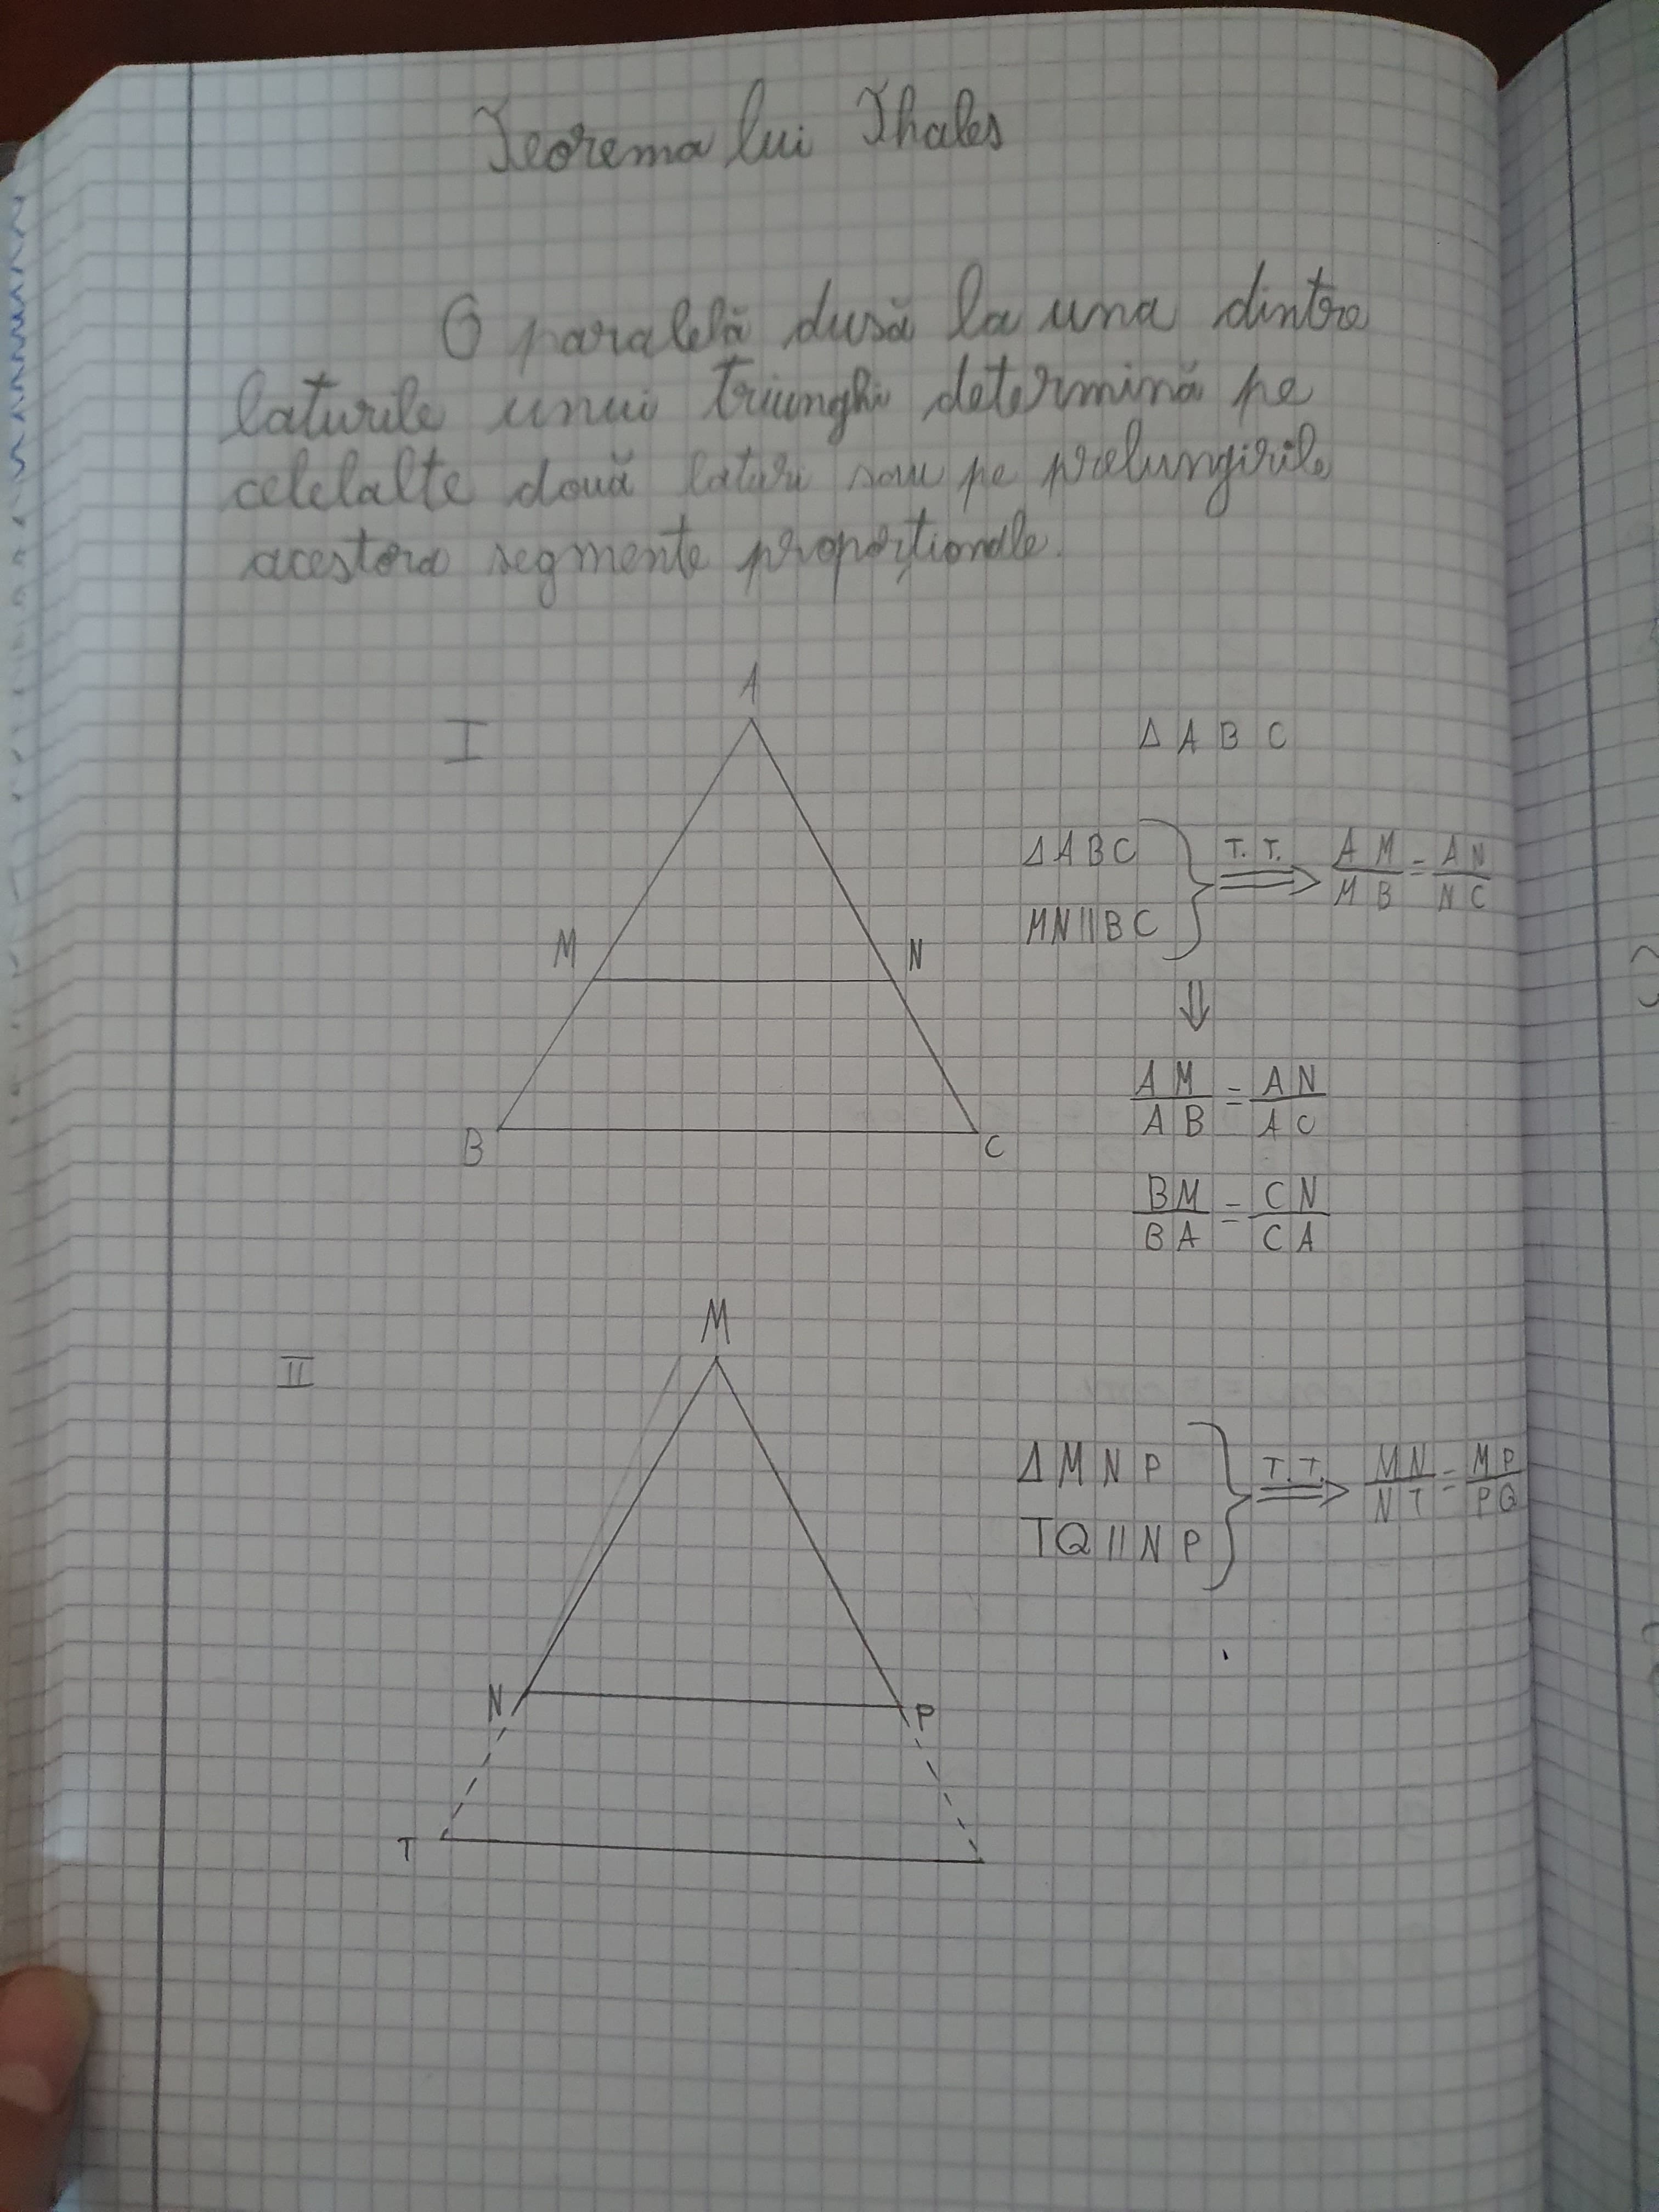 Teorema lui Thales
O paralelă dusă la una dintre
laturile unui triunghi determină pe
celelalte două laturi sau pe prelungirile
acestora segmente proporționale.
I
A
M
N
B
C
Δ A B C
Δ A B C
MN || B C
} T. T. ⟹ AM/MB = AN/NC
⇓
AM/AB = AN/AC
BM/BA = CN/CA
II
M
N
P
T
Δ M N P
TQ || N P
} T. T. ⟹ MN/NT = MP/PQ